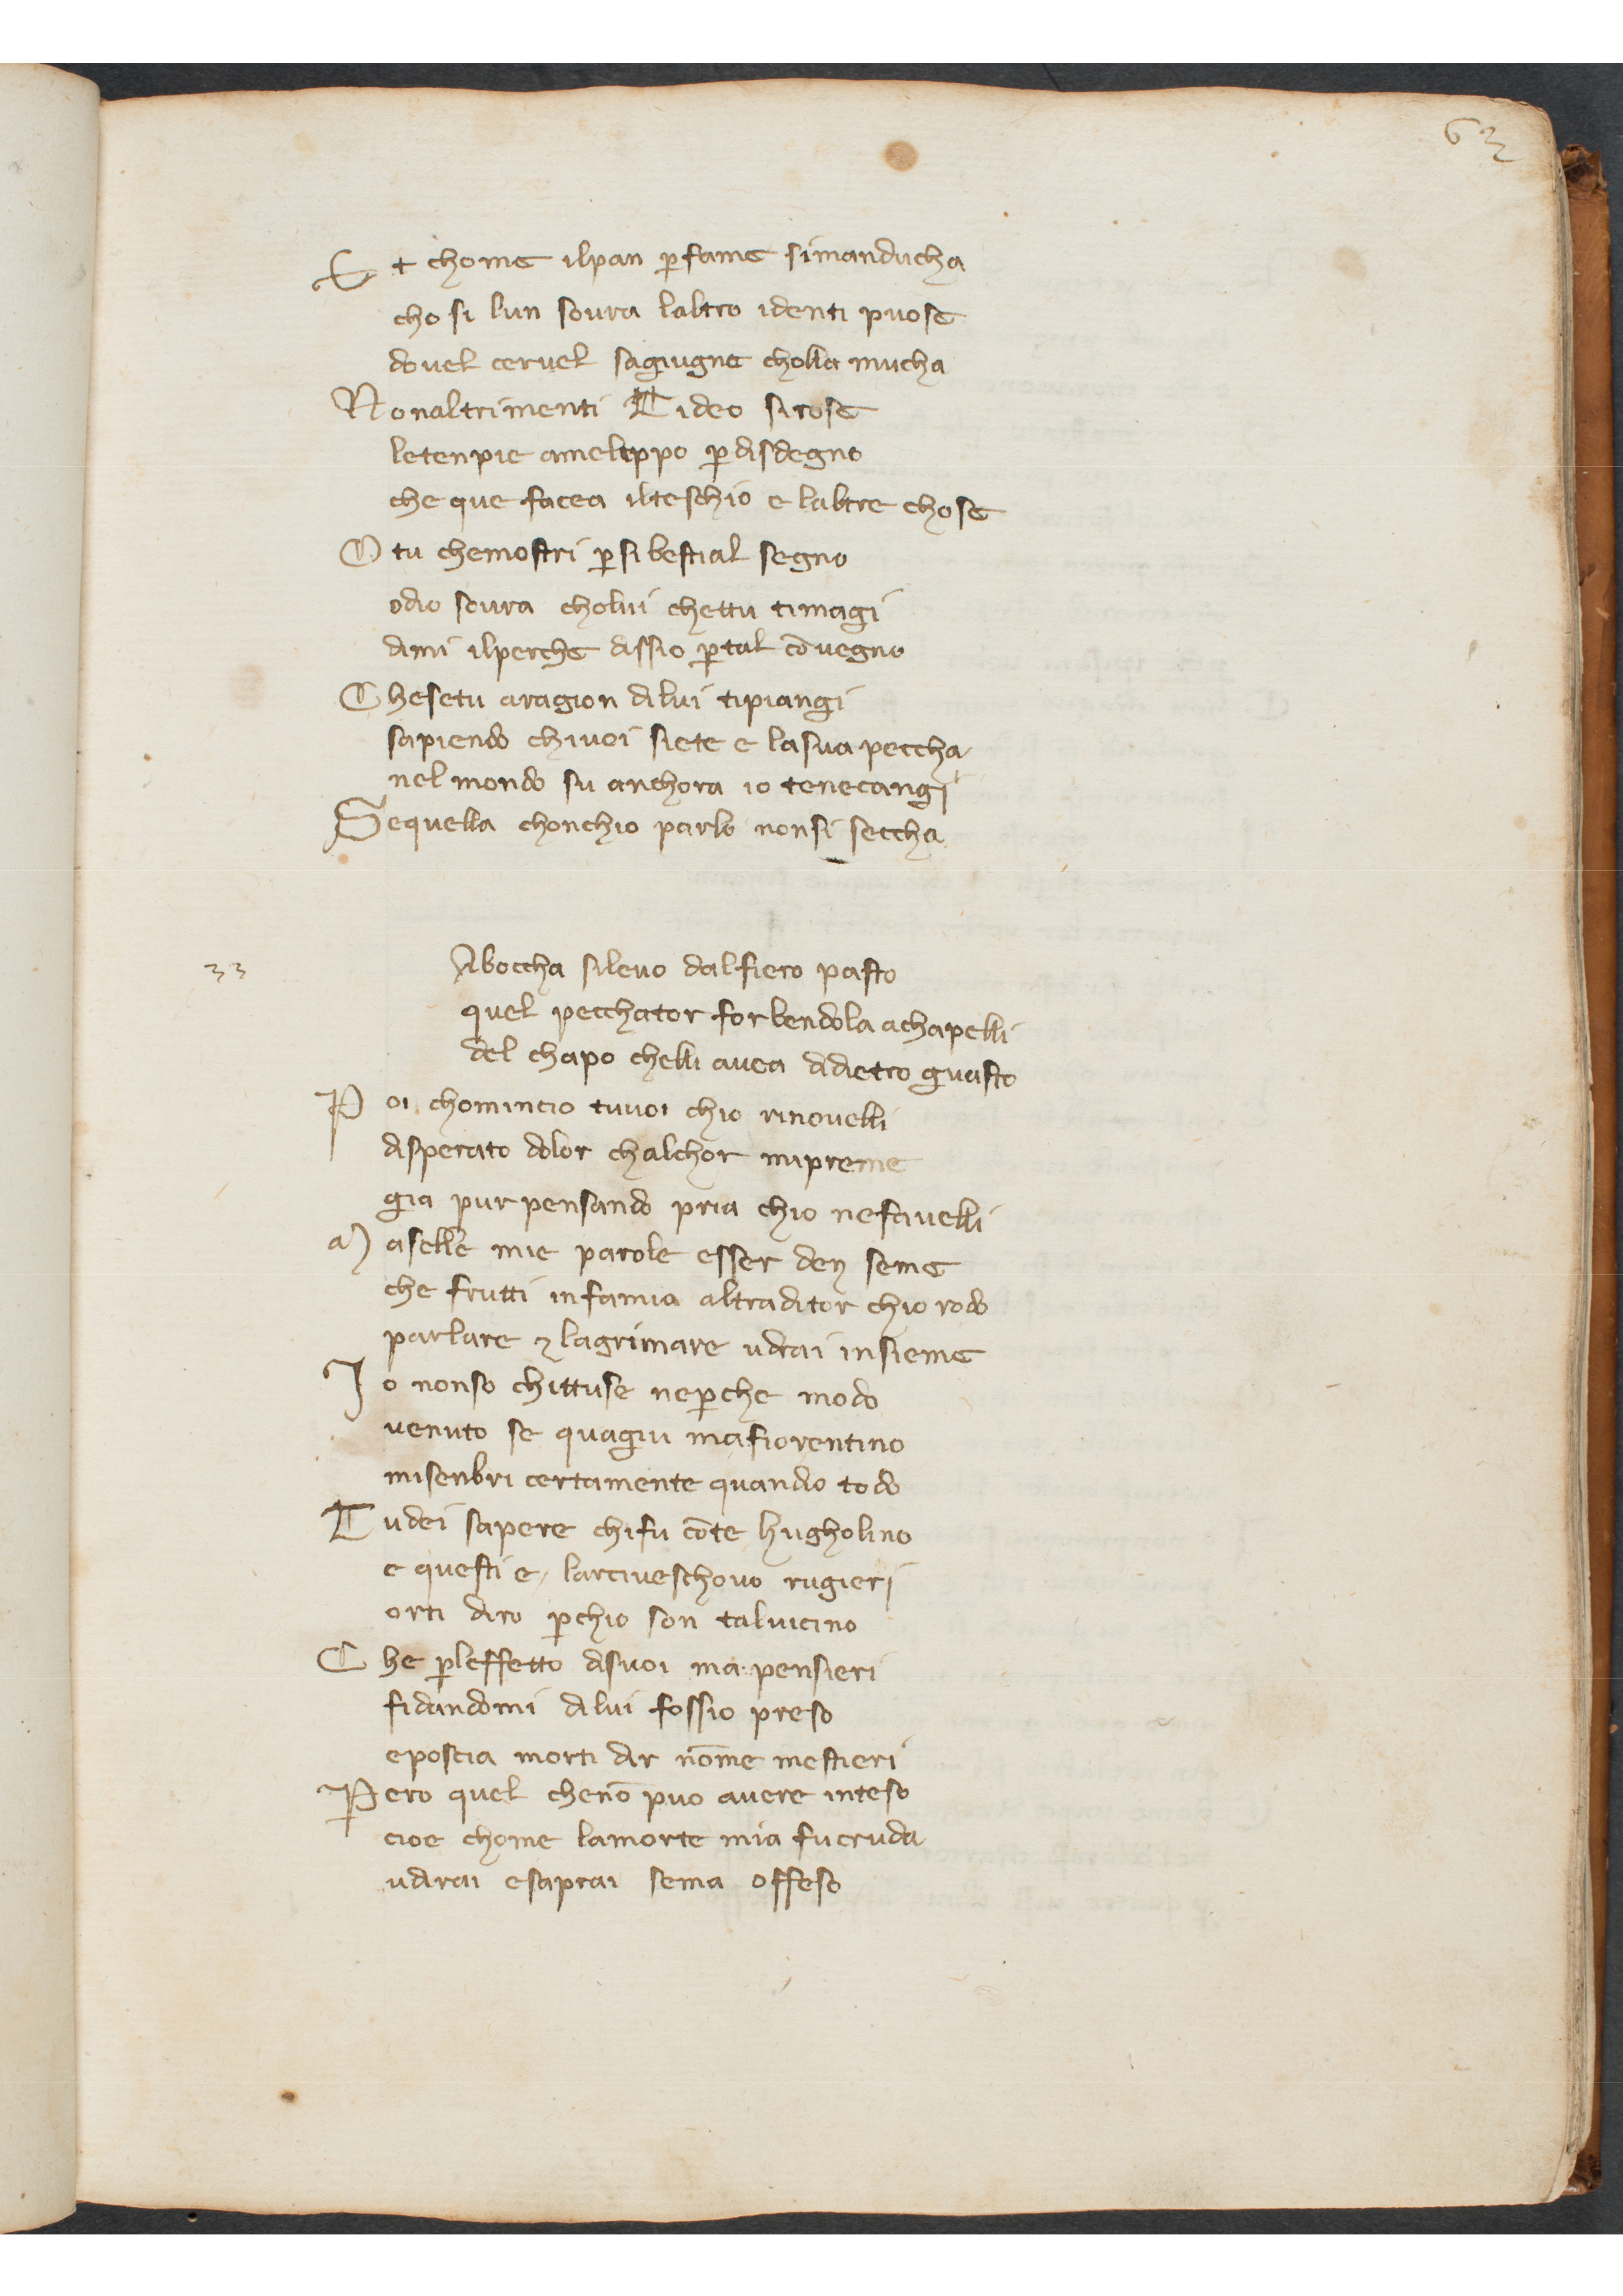 63
Et chome ilpan ꝑfame simanducha
cho si lun soura laltro identi puose
douel ceruel sagiugne cholla mucha
Nonaltrimenti Tideo sirose
letenpie amelippo ꝑdisdegno
che que facea ilteschio e laltre chose
O tu chemostri ꝑsi bestial segno
odio soura cholui chettu timagi
dimi ilperche dissio ꝑtal cōuegno
Chesetu aragion dilui tipiangi
sapiendo chiuoi siete e lasua peccha
nel mondo su anchora io tenecangi
Sequella chonchio parlo nonsi seccha
33
Aboccha sileuo dalfiero pasto
quel pecchator forbendola achapelli
del chapo chelli auea didietro guasto
Poi chomincio tuuoi chio rinouelli
disperato dolor chalchor mipreme
gia pur pensando pria chio nefauelli
Maselle mie parole esser den seme
che frutti infamia altraditor chio rodo
parlare ⁊ lagrimare udrai insieme
Io nonso chittuse neꝑche modo
uenuto se quagiu mafiorentino
misenbri certamente quandio todo
Tudei sapere chifu cōte hugholino
e questi e larciueschouo rugieri
orti diro ꝑchio son taluicino
Che ꝑleffetto disuoi ma pensieri
fidandomi dilui fossio preso
eposcia morti dir nōme mestieri
Pero quel chenō puo auere inteso
cioe chome lamorte mia fucruda
udirai esaprai sema offeso